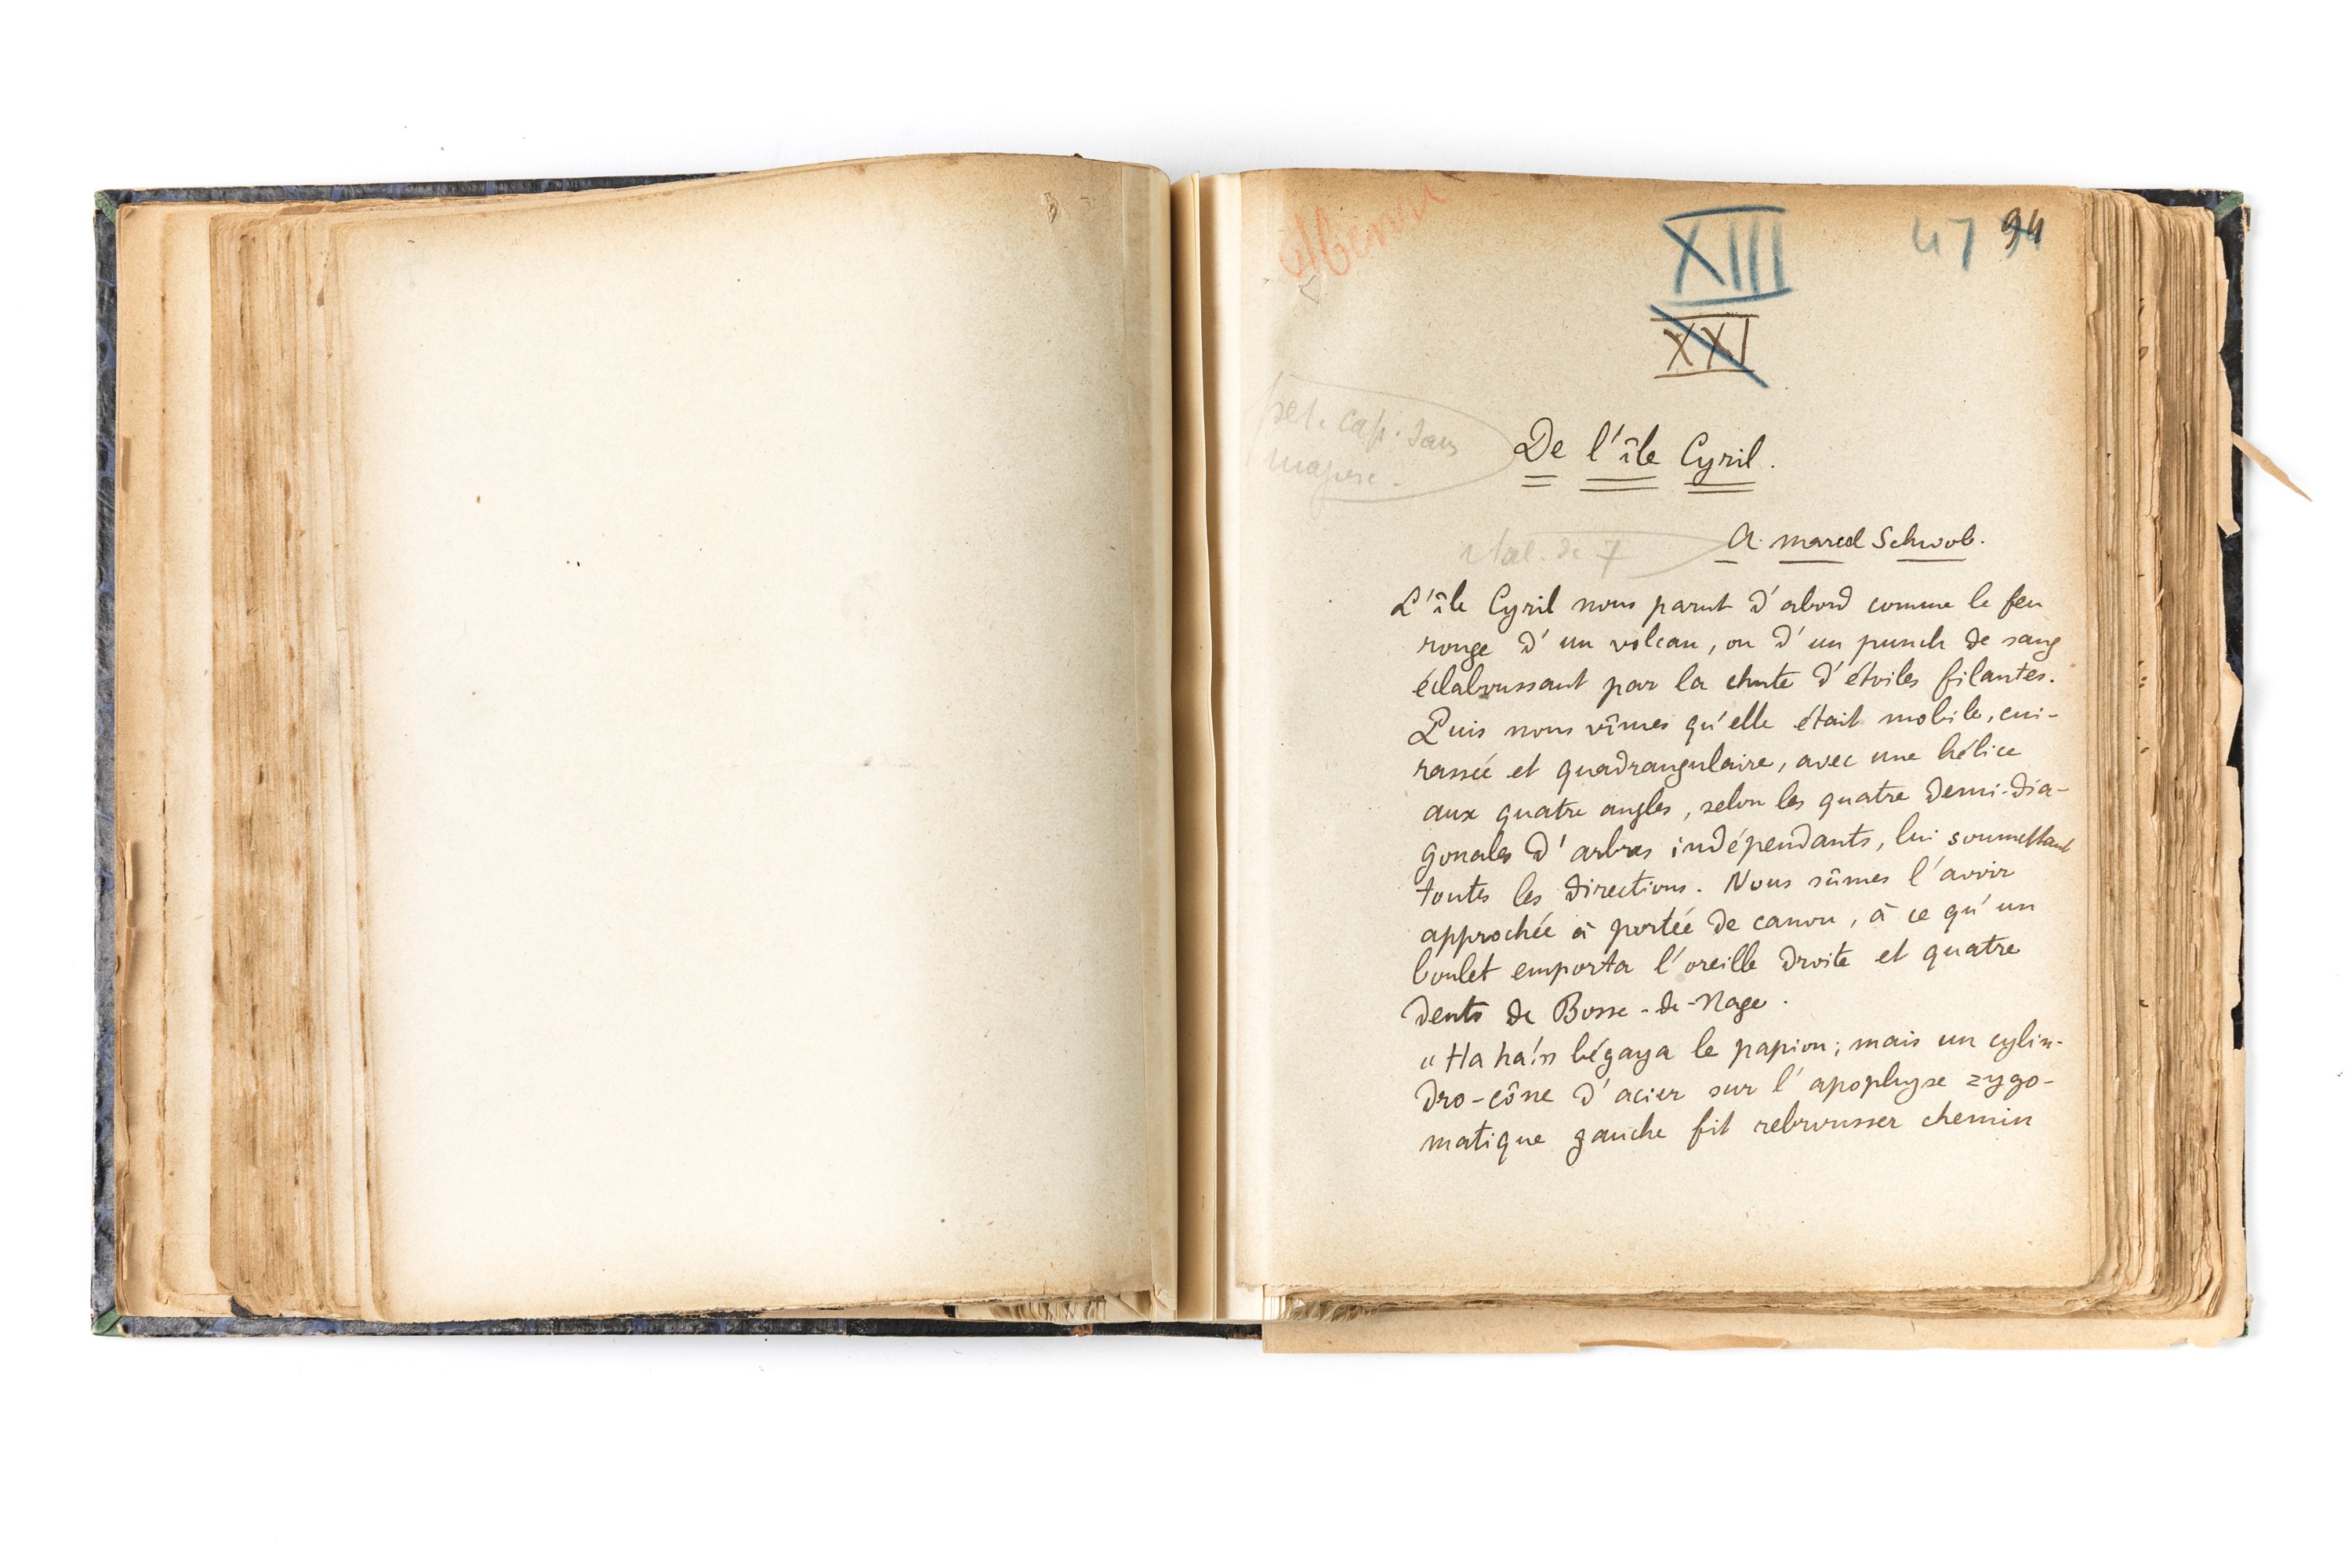 XIII
47 94
XXI
De l'île Cyril.
A Marcel Schwob.
ital. de 7
L'île Cyril nous parut d'abord comme le feu
rouge d'un volcan, ou d'un punch de sang
éclaboussant par la chute d'étoiles filantes.
Puis nous vîmes qu'elle était mobile, cui-
rassée et quadrangulaire, avec une hélice
aux quatre angles, selon les quatre demi-dia-
gonales d'arbres indépendants, lui soumettant
toutes les directions. Nous sûmes l'avoir
approchée à portée de canon, à ce qu'un
boulet emporta l'oreille droite et quatre
dents de Bosse-de-Nage.
« Ha ha! » bégaya le papion; mais un cylin-
dro-cône d'acier sur l'apophyse zygo-
matique gauche fit rebrousser chemin